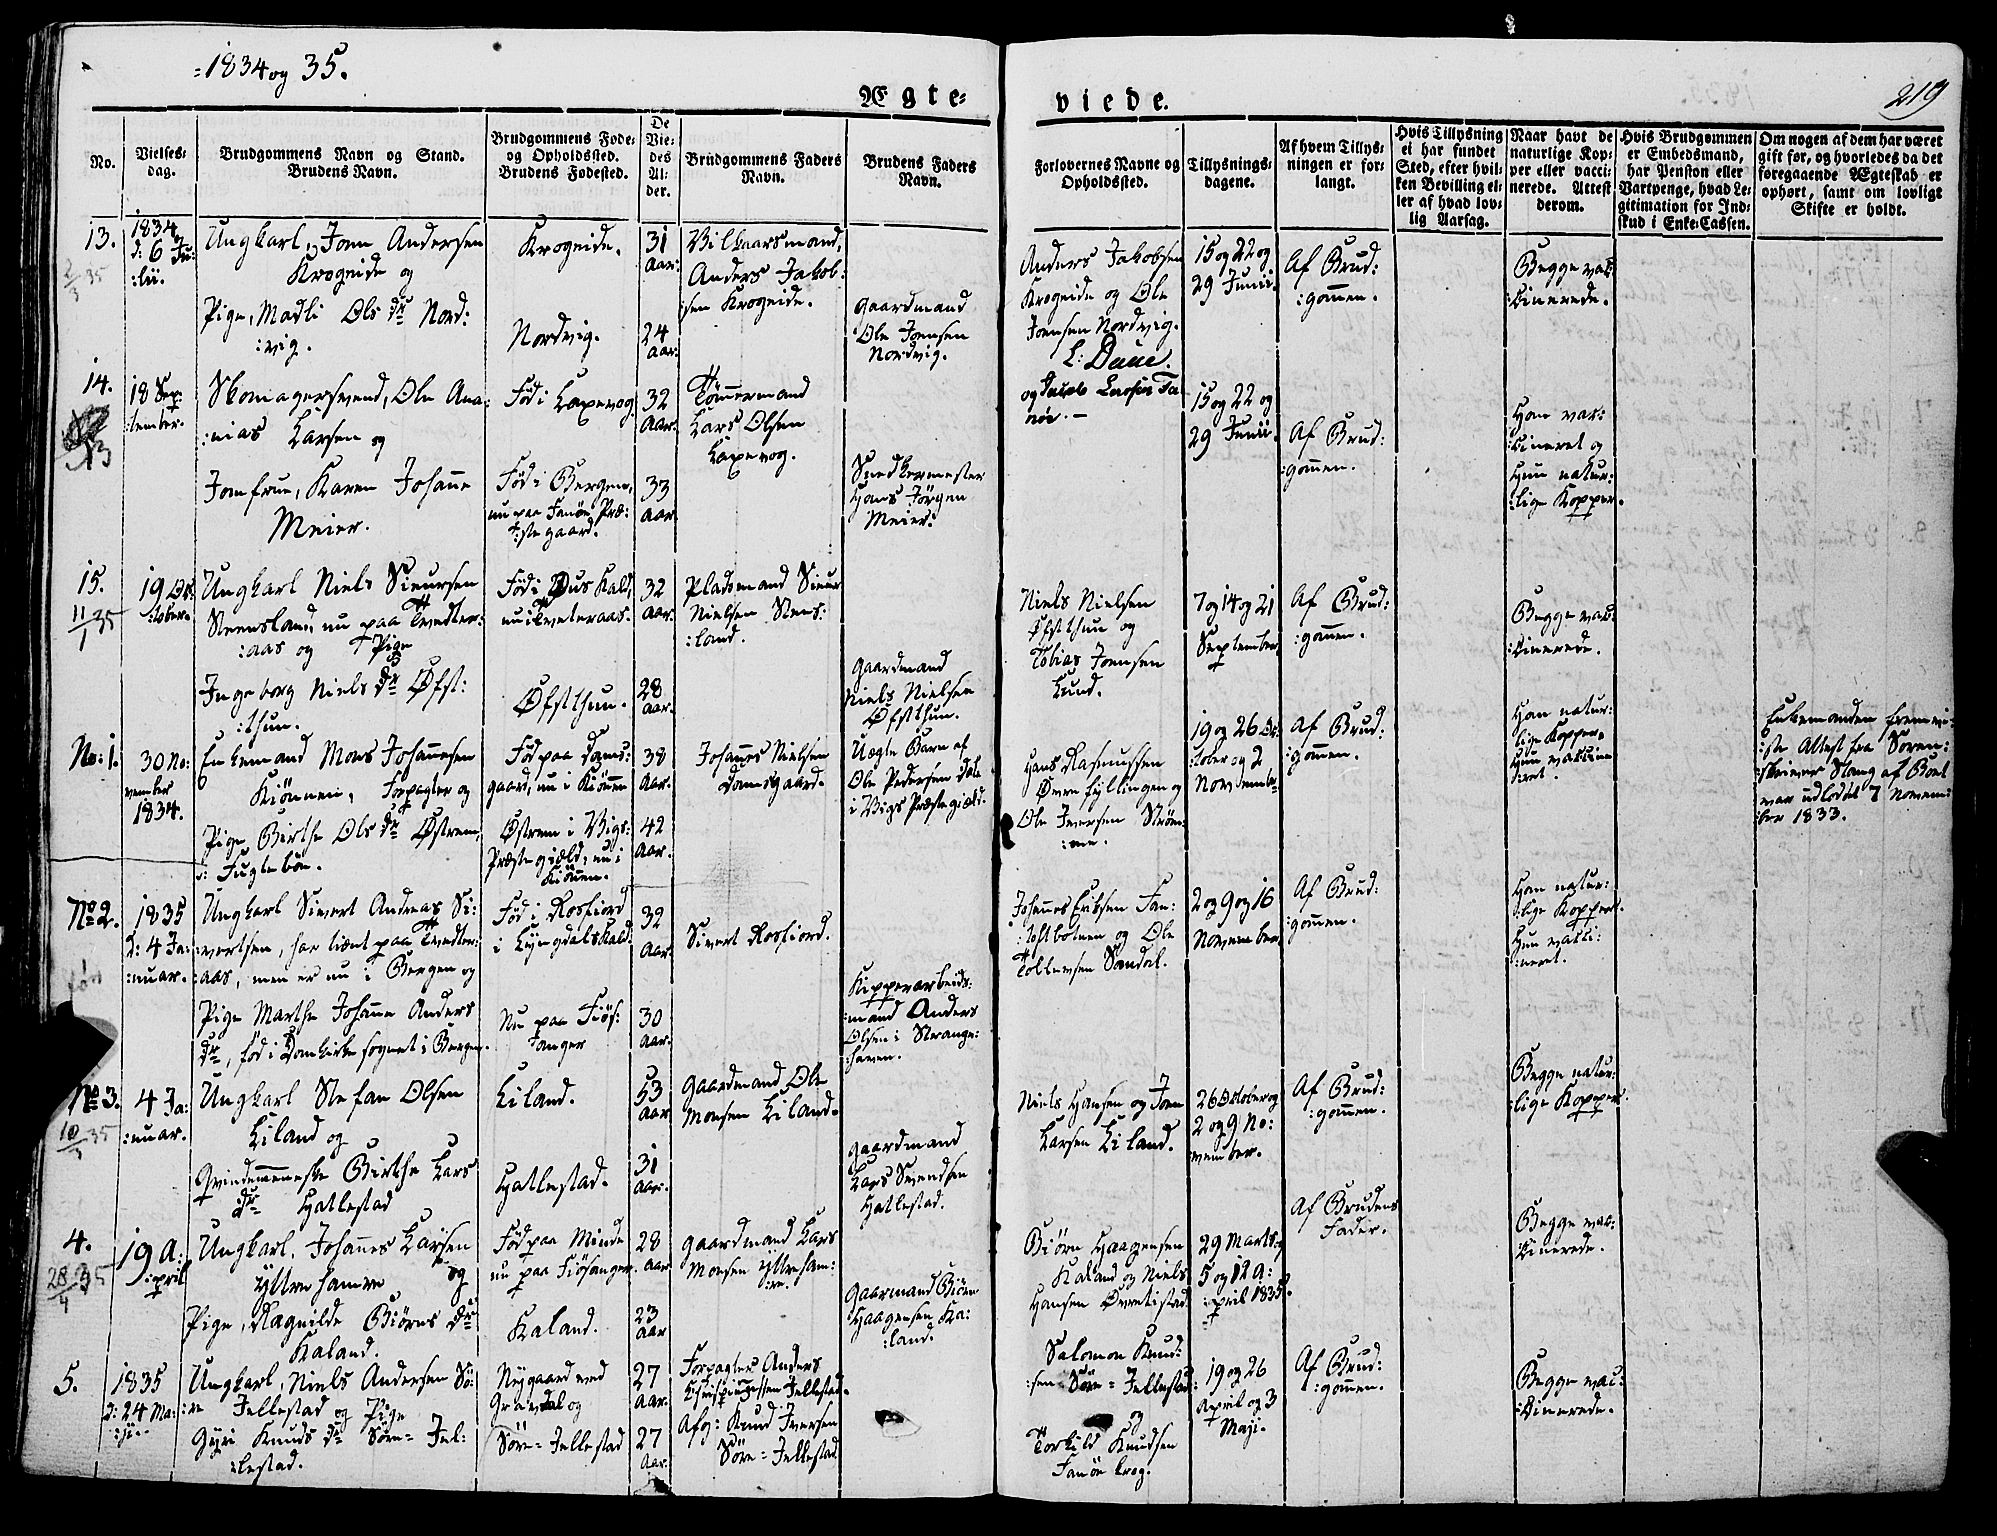 =1834 og 35.
219
Ægte=
viede.
No.
Vielses-
dag.
Brudgommens Navn og Stand.
Brudens Navn.
Brudgommens Føde-
og Opholdssted.
Brudens Fødested.
De
Vie-
des
Al-
der.
Brudgommens Faders
Navn.
Brudens Faders
Navn.
Forlovernes Navne og
Opholdssted.
Tillysnings-
dagene.
Af hvem Tillys-
ningen er for-
langt.
Hvis Tillysning
ei har fundet
Sted, efter hvil-
ken Bevilling el-
ler af hvad lov-
lig Aarsag.
Naar havt de
naturlige Kop-
per eller vacci-
nerede. Attest
derom.
Hvis Brudgommen
er Embedsmand,
har Pension eller
Vartpenge, hvad Le-
gitimation for Ind-
skud i Enke-Cassen.
Om nogen af dem har været
gift før, og hvorledes da det
foregaaende Ægteskab er
ophørt, samt om lovligt
Skifte er holdt.
13.
1834
d: 6 Ju:
:lii.
Ungkarl, Joen Andersen
Krogeide og
Pige, Madli Ols dr Nord:
:vig.
Krogeide.
Nordvig.
31
Aar.
24
Aar.
Vilkaarsmand,
Anders Jakob:
:sen Krogeide.
Gaardmand
Ole Joensen
Nordvig.
Anders Jakobsen
Krogeide og Ole
Joensen Nordvig.
15 og 22 og
29 Junii.
Af Brud:
:gommen.
Begge vak:
:cinerede.
14.
18 Sep:
:tember.
Skomagersvend, Ole Ana:
:nias Larsen og
Jomfrue, Karen Johanne
Meier.
Fød i Laxevog
Fød i Bergen,
nu paa Fanøe Præ:
:ste gaard.
32
Aar.
33
Aar.
Tømmermand
Lars Olsen
Laxevog.
Snedkermester
Hans Jørgen
Meier.
L: Daae.
og Jacob Larsen Fa
nøe. —
15 og 22 og
29 Junii.
Af Brud:
:gommen.
Han vak:
:cineret og
Hun natur:
:lige Kopper.
15.
11/1 35
19 Oc:
:tober.
Ungkarl Niels Sieursen
Steensland, nu paa Tvedter:
:aas og Pige
Ingeborg Niels dr Øfst:
:thun.
Fød i Huus Kald
nu i Tveteraas.
Øfstthun.
32
Aar.
28
Aar.
Pladsmand Sieur
Nielsen Steens:
:land.
Gaardmand
Niels Nielsen
Øfstthun.
Niels Nielsen
Øfstthun og
Tobias Joensen
Lund.
7 og 14 og 21
September
Af Brud:
:gommen.
Begge vak:
:cinerede.
No: 1.
30 No:
vember
1834.
Enkemand Mons Johannesen
Kiønnen, Forpagter og
Pige Berthe Ols dr Østrem,
Fuglebøe.
Fød paa Dams:
gaard, nu i Kiønnen
Østrem i Vigs:
Præstegield, nu i
Kiønnen.
38
Aar.
42
Aar.
Johannes Nielsen
Damsgaard.
Uægte Barn af
Ole Pedersen Dale
i Vigs Præstegield.
Hans Rasmussen
Øvre Fyllingen og
Ole Iversen Strøm:
:me.
19 og 26 Oc:
:tober og 2
November
Af Brud:
:gommen.
Han natur:
lige Kopper.
Hun vaccine
ret.
Enkemanden fremvi:
:ste Attest fra Soren:
:skriver Stang af Boet
var udlodet 7 Novem:
ber 1833.
No 2.
1835
d: 4 Ja:
:nuar.
Ungkarl Sivert Andreas Si:
:vertsen, har tient paa Tvedter:
:aas, men er nu i Bergen og
Pige Marthe Johanne Anders
dr, fød i Domkirke sognet i Bergen.
Fød i Rosfiord
i Lyngdals Kald.
Nu paa Fiøs:
anger
32
Aar.
30
Aar.
Sivert Rosfiord.
Kipperarbeids:
:mand Anders
Olsen i Strange:
:haven.
Johannes Eriksen Fan:
:toftbotnen og Ole
Tollevsen Sandal.
2 og 9 og 16
November
Af Brud:
:gommen.
Han natur:
:lige Kopper.
Hun vakci:
:neret.
No 3.
4 Ja:
:nuar.
Ungkarl Stefan Olsen
Liland og
Qvindemenneske Birthe Lars
dr Hatlestad
Liland.
Hatlestad.
53
Aar
31
Aar.
Gaardmand Ole
Monsen Liland.
Gaardmand
Lars Svendsen
Hatlestad.
Niels Hansen og Joen
Larsen Liland.
26 October og
2 og 9 No:
:vember.
Af Brud:
:gommen.
Begge natur:
:lige Kopper.
4.
28/4 35
19 A:
:pril
Ungkarl, Johannes Larsen
Yttre Hamre og
Pige, Ragnilde Biørns dr
Kaland.
Fød paa Minde
nu paa Fiøsanger.
Kaland.
28
Aar.
23
Aar
Gaardmand Lars
Monsen Yttreham:
:re.
Gaarmand Biørn
Haagensen Ka:
:land.
Biørn Haagensen
Kaland og Niels
Hansen Øvretistad
29 Marts og
5 og 12 A:
:pril 1835.
Af Brudens
Fader.
Begge vac:
:cinerede.
5.
1835
d: 24 Ma:
:ji.
Ungkarl, Niels Andersen Sø:
:re Jellestad og Pige
Gyri Knuds dr Søre= Jel:
:lestad.
Nygaard ved
Gravdal og
Søre= Jellestad
27
Aar.
27
Aar.
Forpagter Anders
Jellestad.
Afg: Knud Iversen
Søre= Jellestad
Salomon Knud:
:sen Søre= Jellestad
og
Torkild Knudsen
Fanøe krog.
19 og 26
April og 3
Maji.
Af Brud:
:gommen.
Begge vac:
:cinerede.